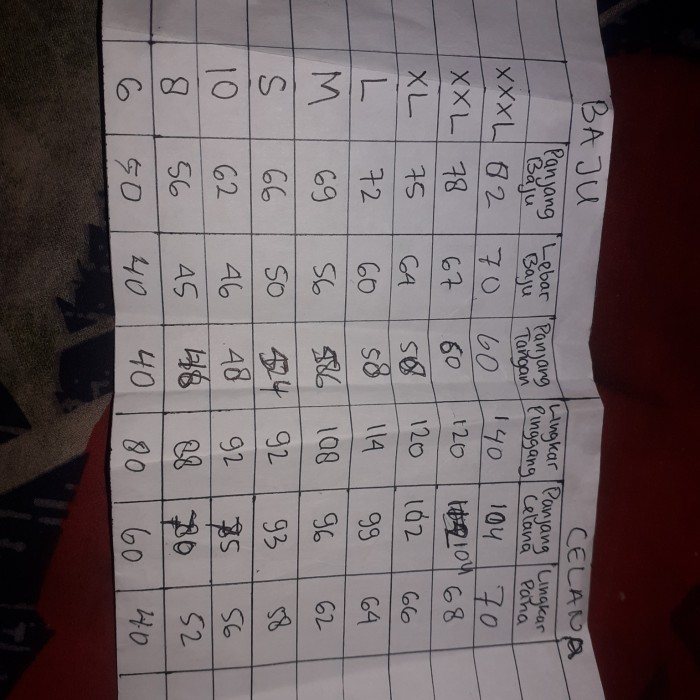 BAJU CELANA
Panjang Baju Lebar Baju Panjang Tangan Lingkar Pinggang Panjang Celana Lingkar Paha
XXXL 82 70 60 140 104 70
XXL 78 67 60 120 104 68
XL 75 64 58 120 102 66
L 72 60 58 114 99 64
M 69 56 56 108 96 62
S 66 50 54 92 93 58
10 62 46 48 92 75 56
8 56 45 88 70 52
6 50 40 40 80 60 40